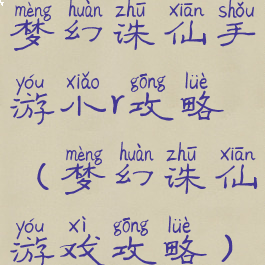 mèng huàn zhū xiān shǒu
梦幻诛仙手
yóu xiǎo gōng lüè
游小r攻略
mèng huàn zhū xiān
(梦幻诛仙
yóu xì gōng lüè
游戏攻略)